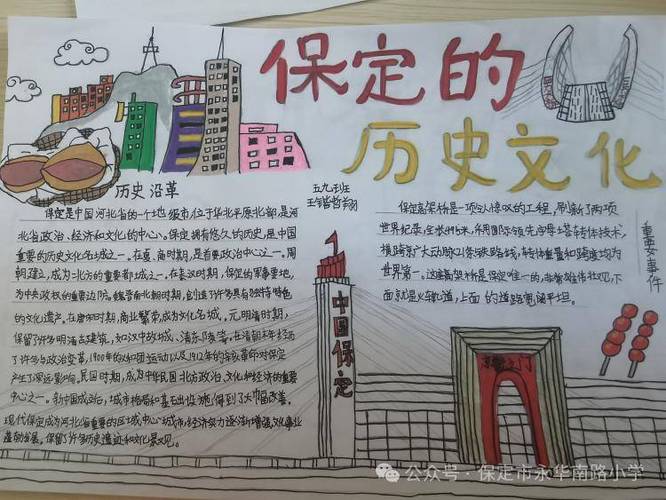 保定的
历史文化
历史沿革
五九班
保定是中国河北省的一个地级市,位于华北平原北部,是河
北省政治、经济和文化的中心。保定拥有悠久的历史,是中国
重要的历史文化名城之一。在夏、商时期,是首要政治中心之一。周
朝建立,成为北方的重要都城之一。在秦汉时期,保定的军事要地,
为中央政权的重要边防。魏晋南北朝时期,创造了许多具有独特特色
的文化遗产。在唐宋时期,商业繁荣,成为文化名城。元明清时期,
保留了许多明清古建筑,如汉中故城、清东陵等,在清朝末年经历
了许多与政治变革,1900年的义和团运动以及1912年的辛亥革命对保定
产生了深远影响。民国时期,成为中华民国北方政治、文化和经济的重要
中心之一。新中国成立后,城市格局和基础设施得到了大幅改善。
现代保定成为河北省重要的区域中心城市,经济努力逐渐增强,文化事业
蓬勃发展,保留了许多历史遗迹和文化景观。
保定高架桥是一项令人惊叹的工程,刷新了两项
世界纪录,全长
横跨京广大动脉21条铁路线,转体重量和跨度均为
世界第一。这座高架桥是保定唯一的,非常雄伟壮观,下
面就是火车轨道,上面的道路宽阔平坦。
重要事件
中国保定
公众号·保定市永华南路小学